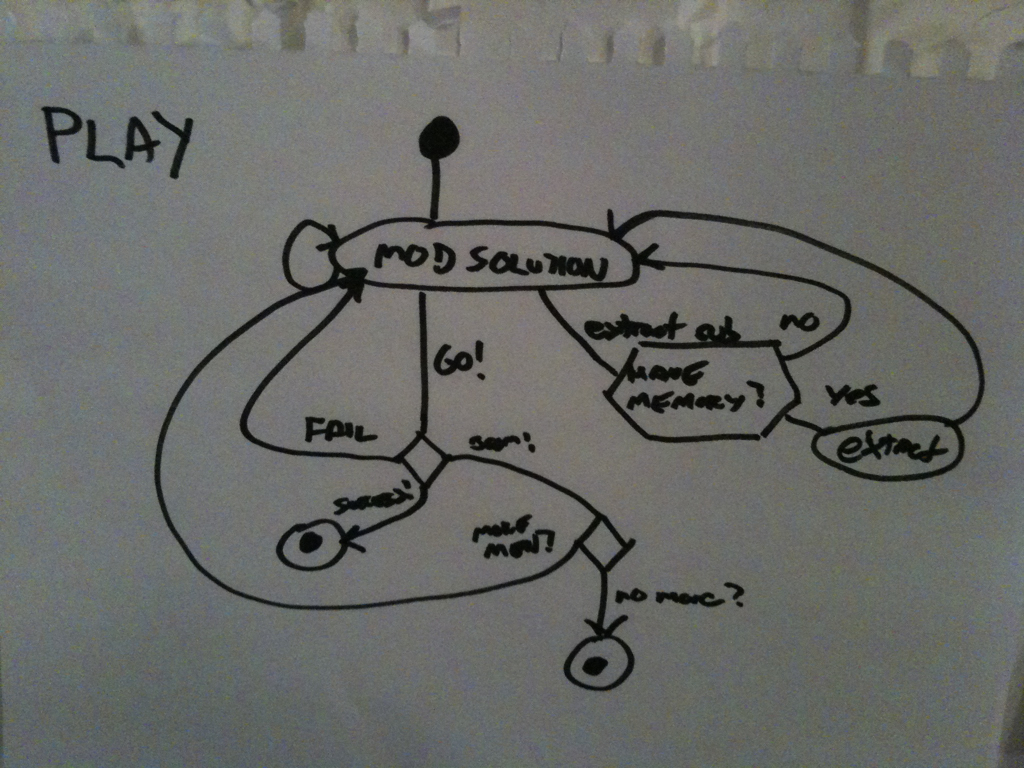 PLAY
MOD SOLUTION
extract sub
no
HAVE
MEMORY?
GO!
yes
extract
FAIL
Boom!
success!
MORE
MEN?
no more?